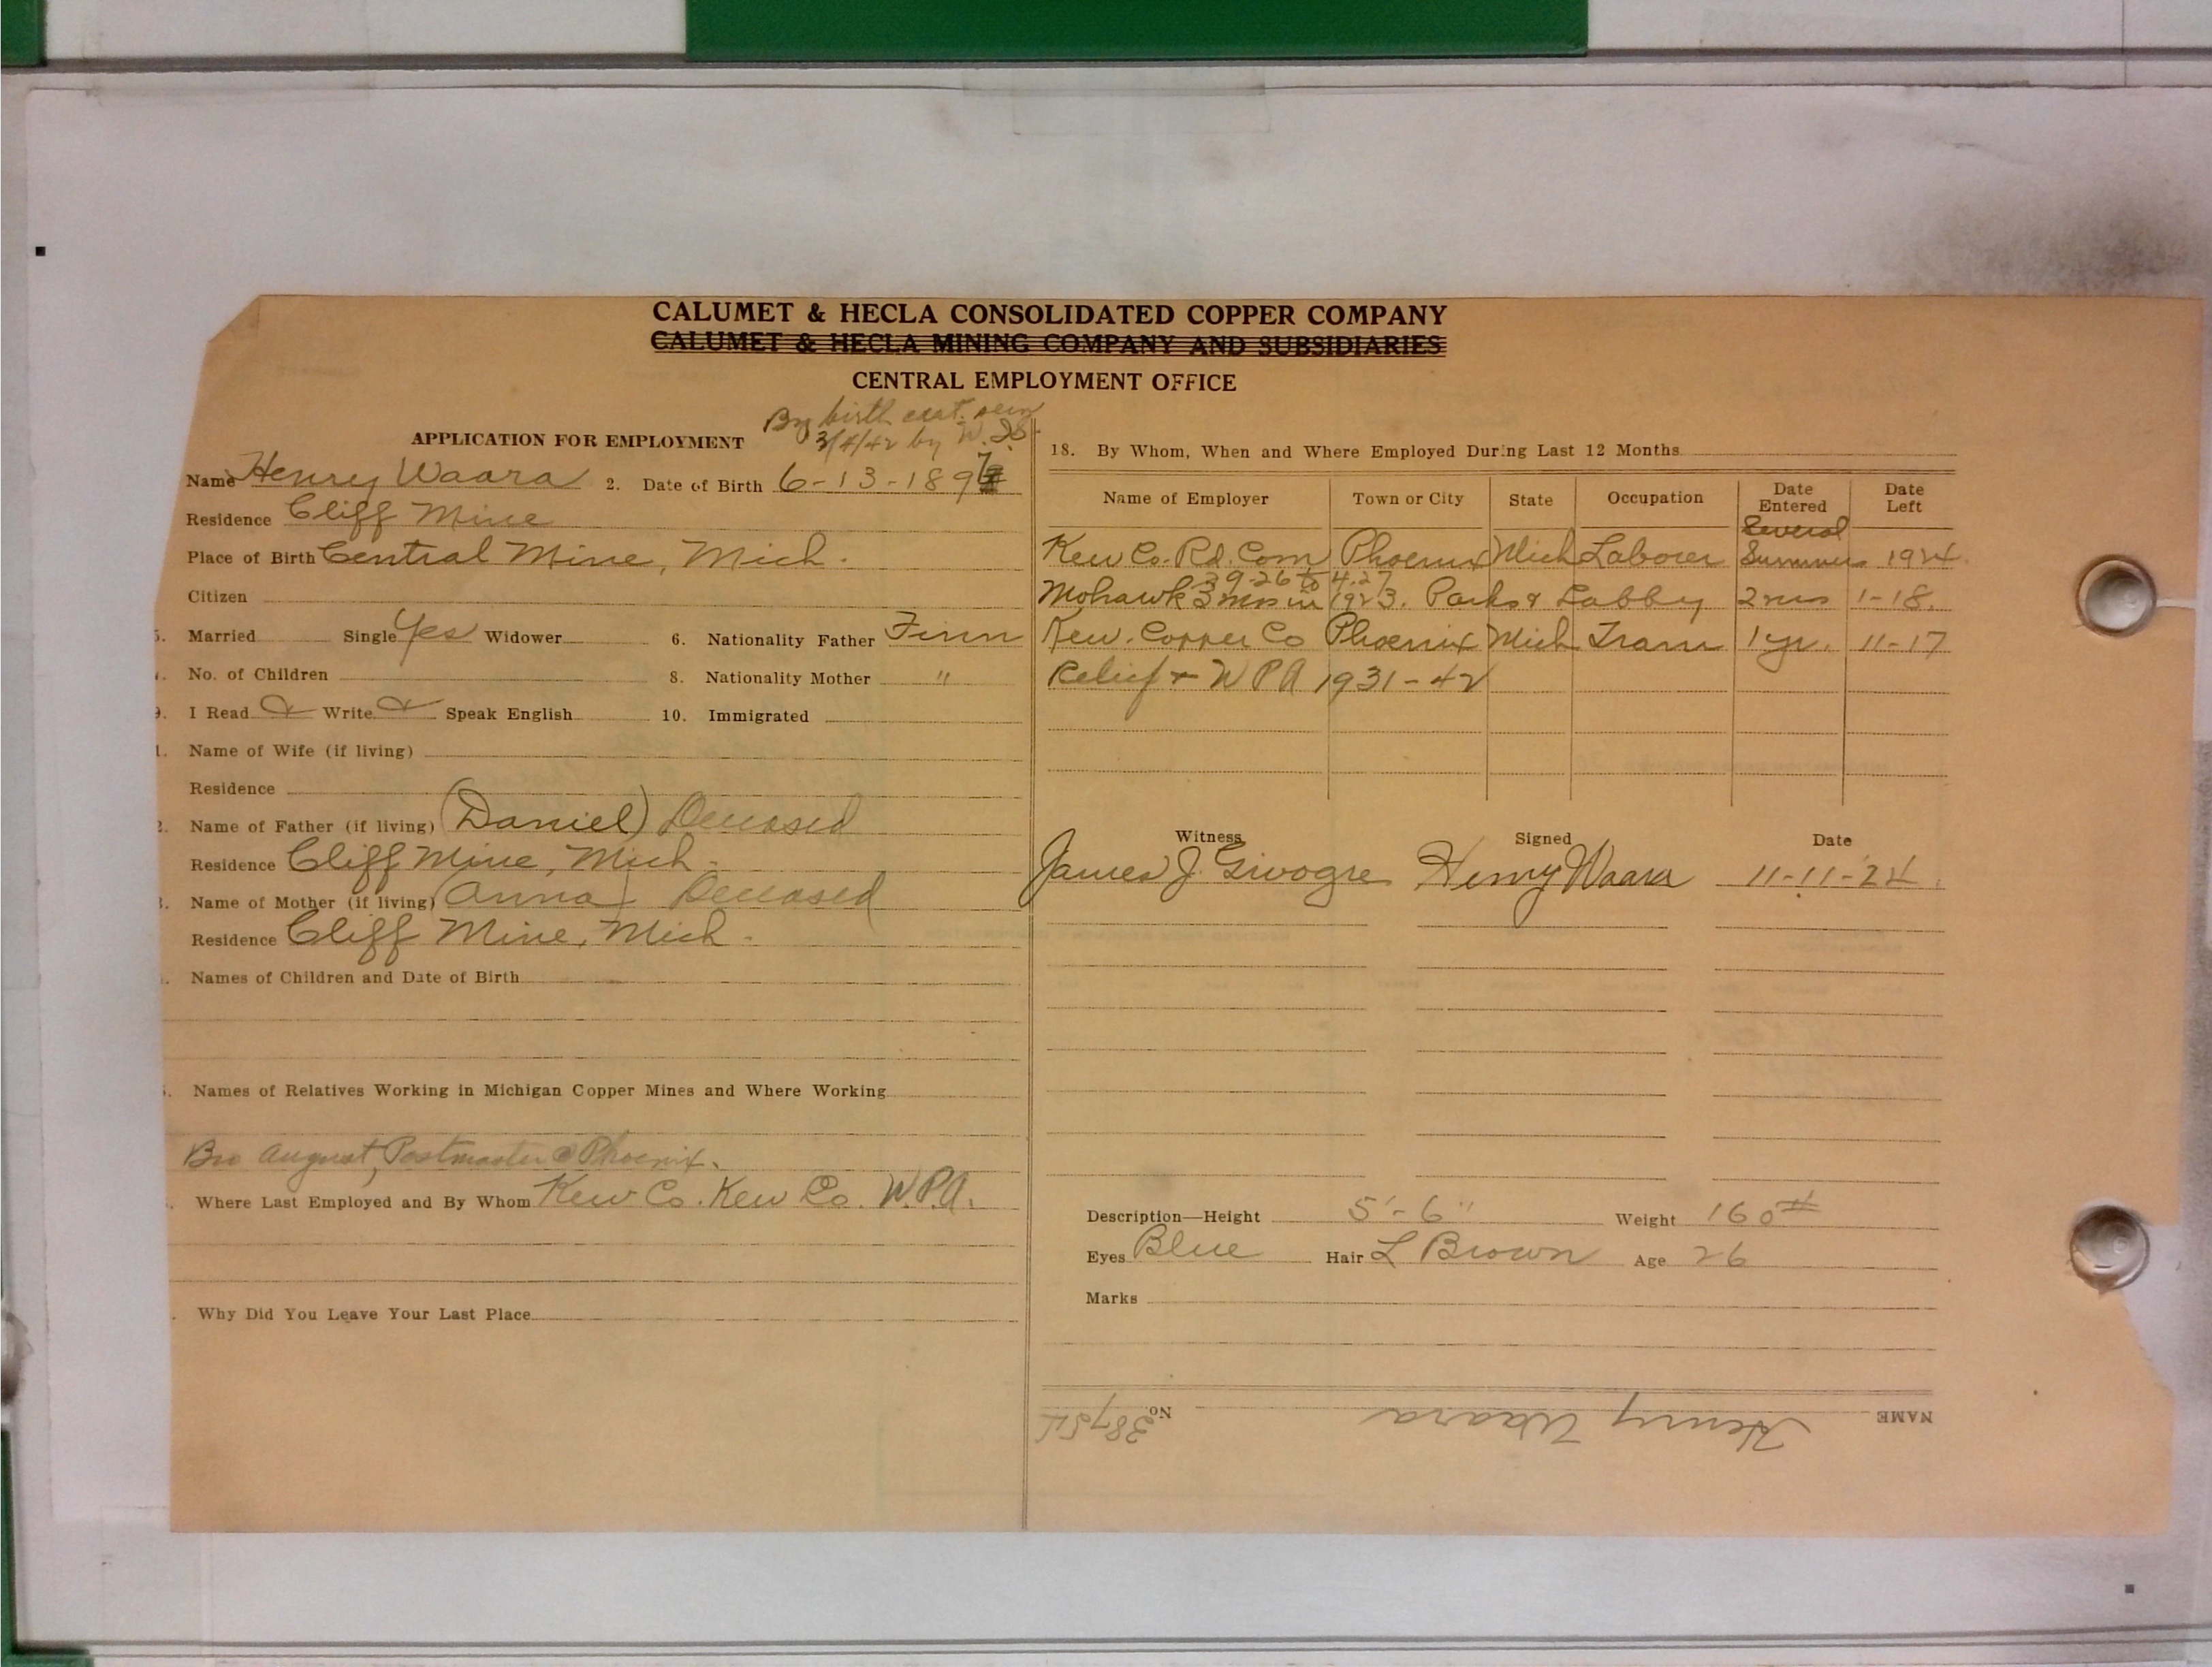 CALUMET & HECLA CONSOLIDATED COPPER COMPANY
CALUMET & HECLA MINING COMPANY AND SUBSIDIARIES
CENTRAL EMPLOYMENT OFFICE
By birth cert. seen
3/4/42 by W.
APPLICATION FOR EMPLOYMENT
Name Henry Waara 2. Date of Birth 6-13-1897
Residence Cliff Mine
Place of Birth Central Mine, Mich.
Citizen
5. Married Single Yes Widower 6. Nationality Father Finn
No. of Children 8. Nationality Mother "
9. I Read Write Speak English 10. Immigrated
1. Name of Wife (if living)
Residence
2. Name of Father (if living) (Daniel) Deceased
Residence Cliff Mine, Mich.
Name of Mother (if living) (Anna) Deceased
Residence Cliff Mine, Mich.
Names of Children and Date of Birth
Names of Relatives Working in Michigan Copper Mines and Where Working
Bro August, Postmaster @ Phoenix.
Where Last Employed and By Whom Kew Co. Kew Co. W.P.A.
Why Did You Leave Your Last Place
18. By Whom, When and Where Employed During Last 12 Months
Name of Employer Town or City State Occupation Date Entered Date Left
Several
Kew Co. Rd. Com Phoenix Mich Laborer Summers 1924
9-26 to 4.27
Mohawk 3 mos in 1923. Parks & Labby 2 mos 1-18.
Kew. Copper Co Phoenix Mich Tram 1 yr. 11-17
Relief + WPA 1931-42
Witness Signed Date
James J. Givogre Henry Waara 11-11-24.
Description—Height 5'-6" Weight 160#
Eyes Blue Hair L Brown Age 26
Marks
NAME Henry Waara No.